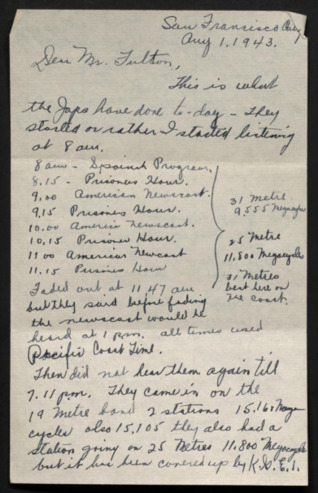 San Francisco
Aug 1. 1943.
Dear Mr. Fulton,
This is what
the Japs have done to-day - They
started or rather I started listening
at 8 am.
8 am - Spanish Program.
8.15 - Prisoners Hour.
9.00 American Newscast.
9.15 Prisoners Hour.
10.00 America Newscast.
10.15 Prisoner Hour.
11.00 American Newcast
11.15 Prisoners Hour
31 Metre
9.555 Megacycles
25 Metre
11.800 Megacycles
31 Metres
best here on
the coast.
Faded out at 11.47 am
but they said before fading
the newscast would be
heard at 1 pm. all times used
Pacific Coast Time.
Then did not hear them again till
7.11 pm. They came in on the
19 Metre band 2 stations 15.160 Mega
cycles also 15.105 they also had a
station going on 25 Metres 11.800 Megacycles
but it has been covered up by K.G.E.I.